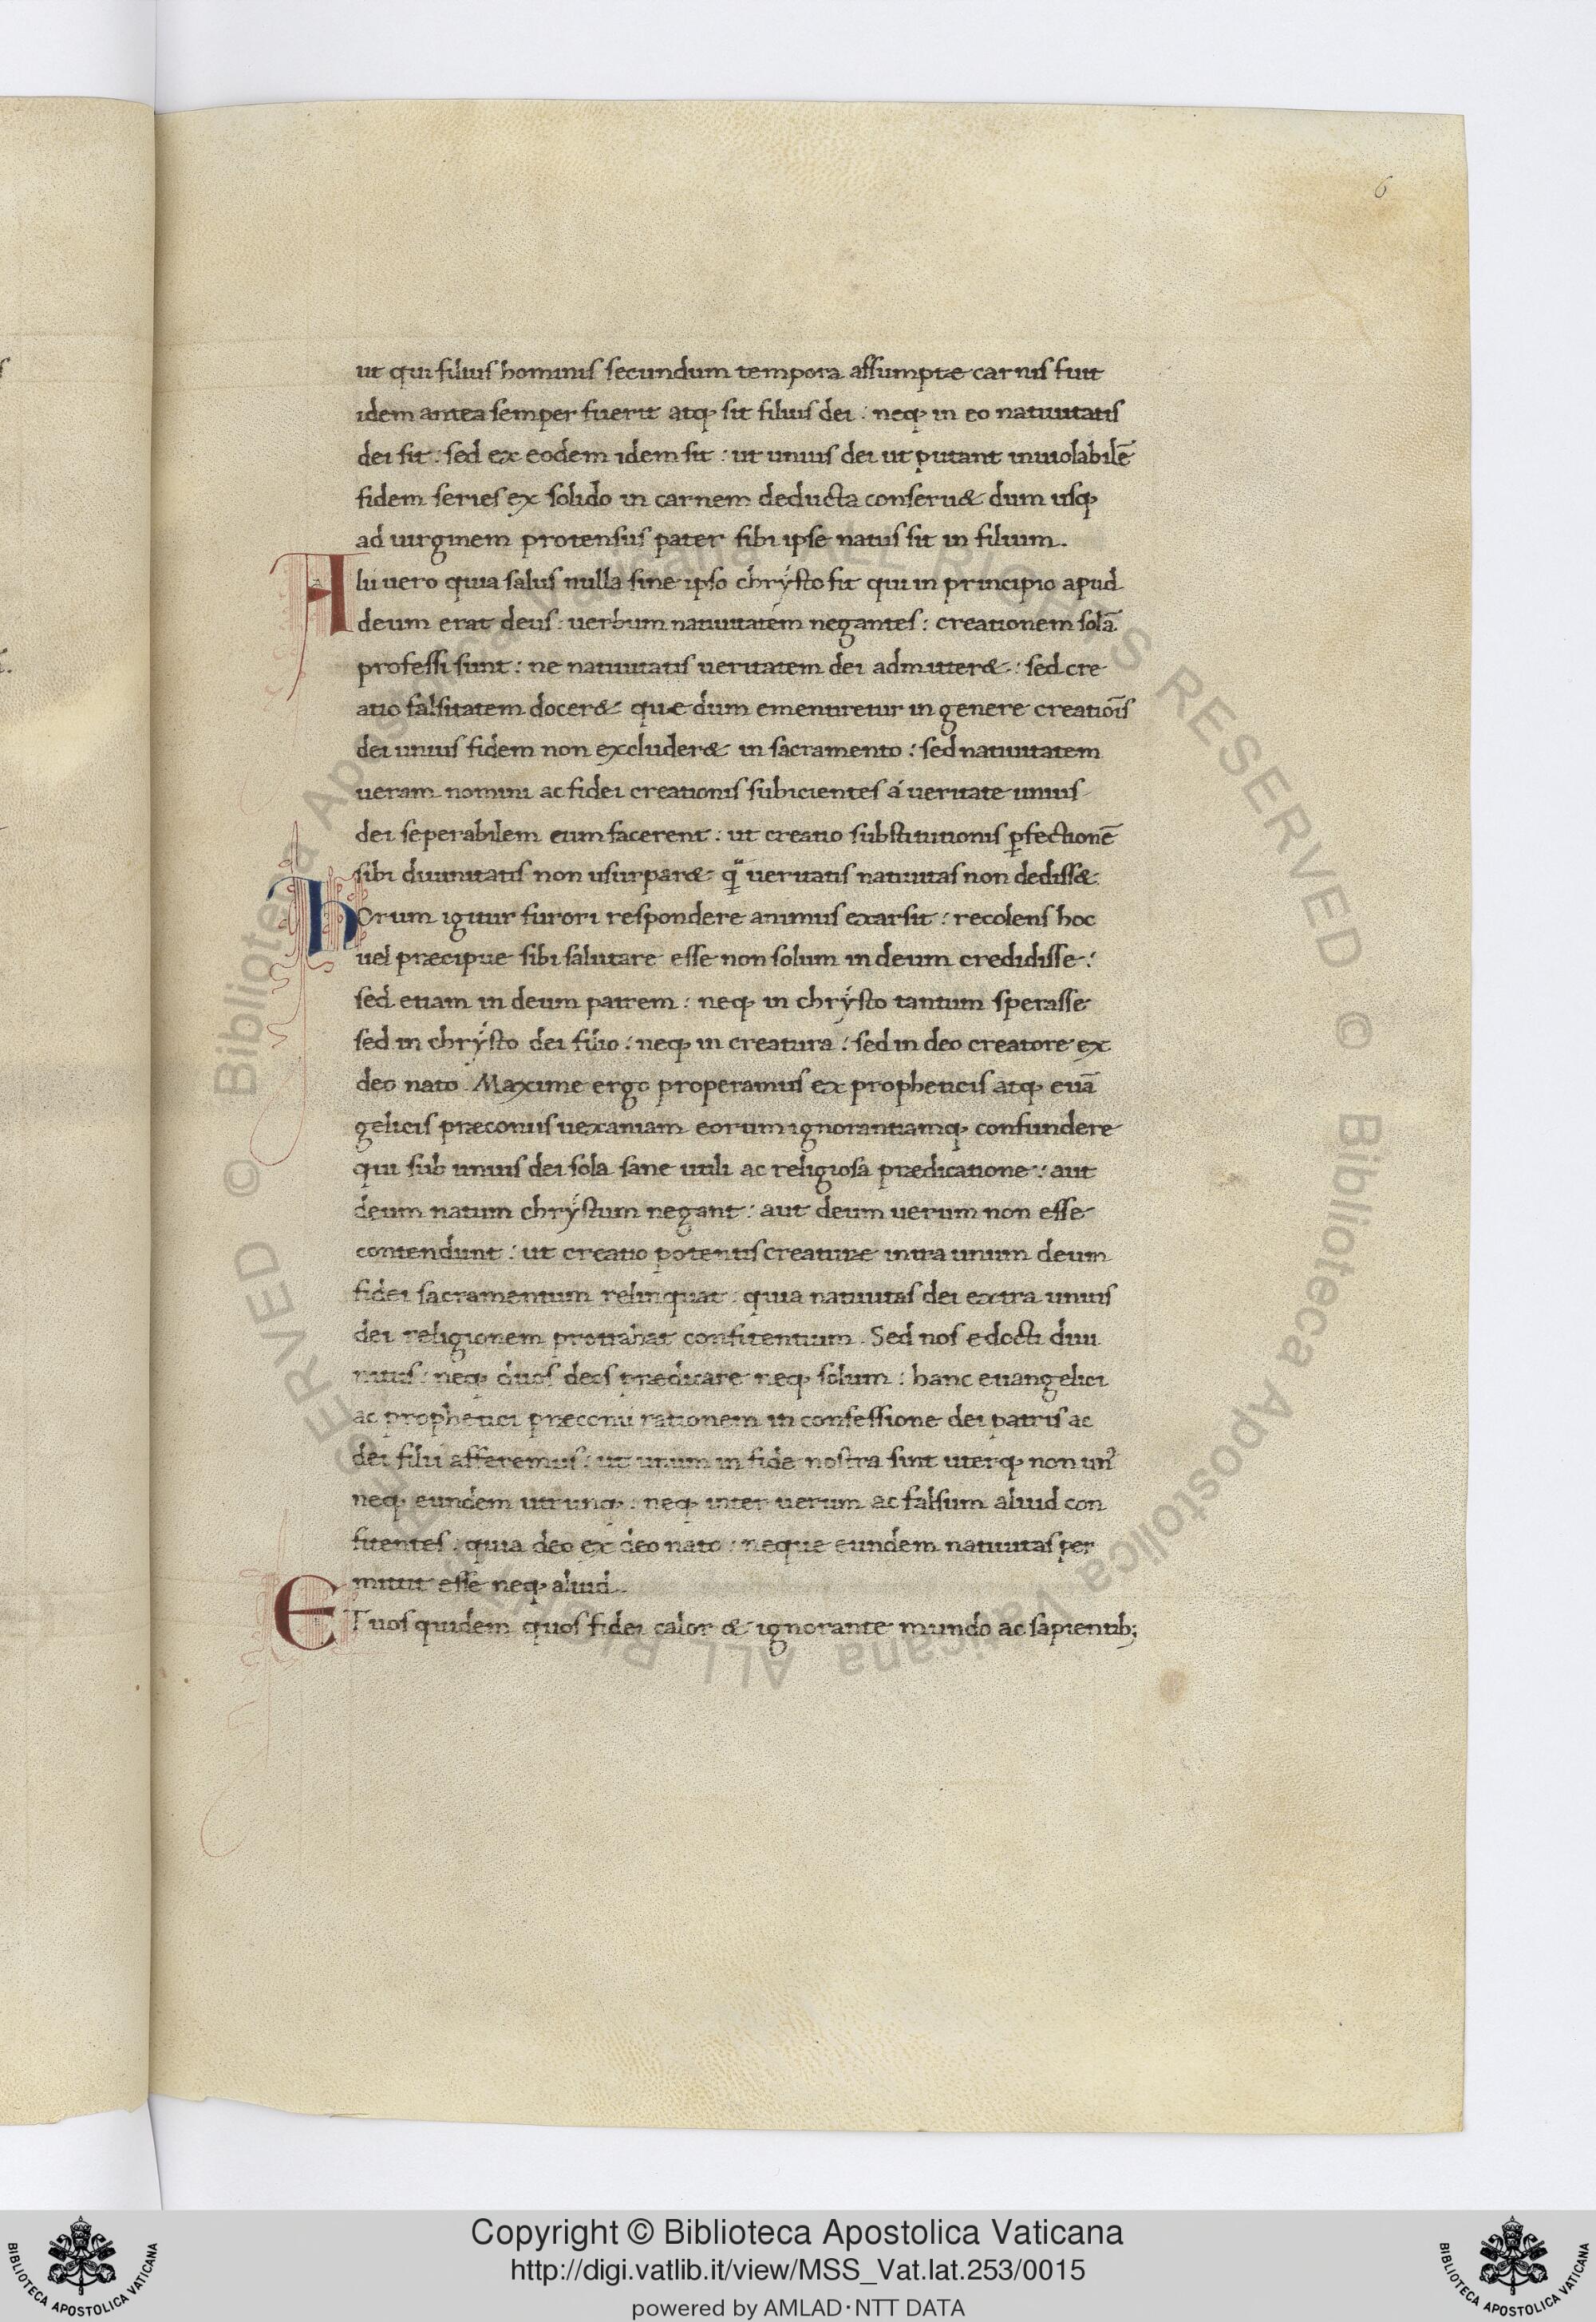 6
ut qui filius hominis secundum tempora assumptæ carnis fuit
idem antea semper fuerit atq; sit filius dei : neq; in eo natiuitatis
dei sit : sed ex eodem idem sit : ut unius dei ut putant inuiolabilē
fidem series ex solido in carnem deducta conseru& dum usq;
ad uirginem protensus pater sibi ipse natus sit in filium.
Alii uero quia salus nulla sine ipso chrẏsto sit qui in principio apud
deum erat deus : uerbum natiuitatem negantes : creationem solā
professi sunt : ne natiuitatis ueritatem dei admitter& : sed cre
atio falsitatem docer& quæ dum ementiretur in genere creatiōis
dei unius fidem non excluder& in sacramento : sed natiuitatem
ueram nomini ac fidei creationis subicientes á ueritate unius
dei seperabilem eum facerent : ut creatio substitutionis ꝑfectionē
sibi diuinitatis non usurpar& quā ueritatis natiuitas non dediss&
horum igitur furori respondere animus exarsit : recolens hoc
uel præcipue sibi salutare esse non solum in deum credidisse :
sed etiam in deum patrem : neq; in chrẏsto tantum sperasse
sed in chrẏsto dei filio : neq; in creatura : sed in deo creatore ex
deo nato. Maxime ergo properamus ex propheticis atq; euā
gelicis præconiis uexaniam eorum ignorantiamq; confundere
qui sub unius dei sola sane utili ac religiosa prædicatione : aut
deum natum chrẏstum negant : aut deum uerum non esse
contendunt : ut creatio potentis creaturæ intra unum deum
fidei sacramentum relinquat : quia natiuitas dei extra unius
dei religionem protrahat confitentium. Sed nos edocti diui
nitus : neq; duos deos prædicare neq; solum : hanc euangelici
ac prophetici præconii rationem in confessione dei patris ac
dei filii afferemus : ut unum in fide nostra sint uterq; non unꝰ
neq; eundem utrunq; : neq; inter uerum ac falsum aliud con
fitentes : quia deo ex deo nato : neque eundem natiuitas per
mittit esse neq; aliud.
ET uos quidem quos fidei calor & ignorante mundo ac sapientib;
© Biblioteca Apostolica Vaticana ALL RIGHTS RESERVED © Biblioteca Apostolica Vaticana ALL RIGHTS RESERVED
Copyright © Biblioteca Apostolica Vaticana
http://digi.vatlib.it/view/MSS_Vat.lat.253/0015
powered by AMLAD·NTT DATA
BIBLIOTECA APOSTOLICA VATICANA
BIBLIOTECA APOSTOLICA VATICANA